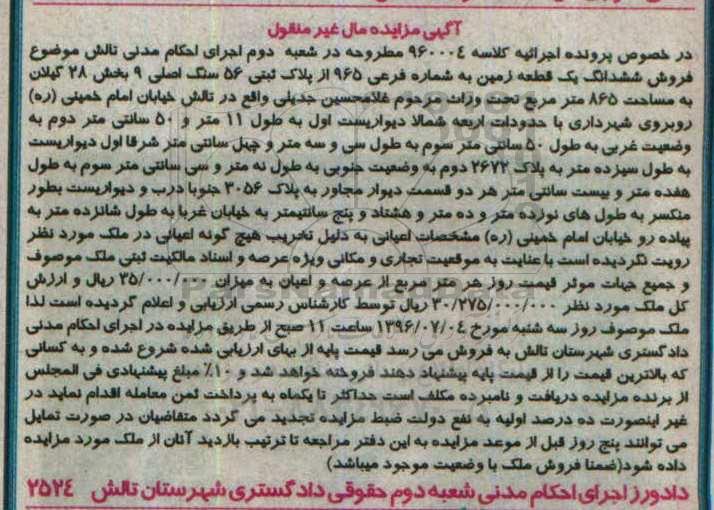 آگهی مزایده مال غیر منقول
در خصوص پرونده اجرائیه کلاسه ۹۶۰۰۰۴ مطروحه در شعبه دوم اجرای احکام مدنی تالش موضوع
فروش ششدانگ یک قطعه زمین به شماره فرعی ۹۶۵ از پلاک ثبتی ۵۶ سنگ اصلی ۹ بخش ۲۸ گیلان
به مساحت ۸۶۵ متر مربع تحت وراث مرحوم غلامحسین جدینی واقع در تالش خیابان امام خمینی (ره)
روبروی شهرداری با حدودات اربعه شمالا دیواریست اول به طول ۱۱ متر و ۵۰ سانتی متر دوم به
وضعیت غربی به طول ۵۰ سانتی متر سوم به طول سی و سه متر و چهل سانتی متر شرقا اول دیواریست
به طول سیزده متر به پلاک ۲۶۷۲ دوم به وضعیت جنوبی به طول نه متر و سی سانتی متر سوم به طول
هفده متر و بیست سانتی متر هر دو قسمت دیوار مجاور به پلاک ۳۰۵۶ جنوبا درب و دیواریست بطور
منکسر به طول های نوزده متر و ده متر و هشتاد و پنج سانتیمتر به خیابان غربا به طول شانزده متر به
پیاده رو خیابان امام خمینی (ره) مشخصات اعیانی به دلیل تخریب هیچ گونه اعیانی در ملک مورد نظر
رویت نگردیده است با عنایت به موقعیت تجاری و مکانی ویژه عرصه و اسناد مالکیت ثبتی ملک موصوف
و جمیع جهات موثر قیمت روز هر متر مربع از عرصه و اعیان به میزان ۳۵/۰۰۰/۰۰۰ ریال و ارزش
کل ملک مورد نظر ۳۰/۲۷۵/۰۰۰/۰۰۰ ریال توسط کارشناس رسمی ارزیابی و اعلام گردیده است لذا
ملک موصوف روز سه شنبه مورخ ۱۳۹۶/۰۷/۰۴ ساعت ۱۱ صبح از طریق مزایده در اجرای احکام مدنی
دادگستری شهرستان تالش به فروش می رسد قیمت پایه از بهای ارزیابی شده شروع شده و به کسانی
که بالاترین قیمت را از قیمت پایه پیشنهاد دهند فروخته خواهد شد و ۱۰٪ مبلغ پیشنهادی فی المجلس
از برنده مزایده دریافت و نامبرده مکلف است حداکثر تا یکماه به پرداخت ثمن معامله اقدام نماید در
غیر اینصورت ده درصد اولیه به نفع دولت ضبط مزایده تجدید می گردد متقاضیان در صورت تمایل
می توانند پنج روز قبل از موعد مزایده به این دفتر مراجعه تا ترتیب بازدید آنان از ملک مورد مزایده
داده شود(ضمنا فروش ملک با وضعیت موجود میباشد)
دادورز اجرای احکام مدنی شعبه دوم حقوقی دادگستری شهرستان تالش ۲۵۲۴